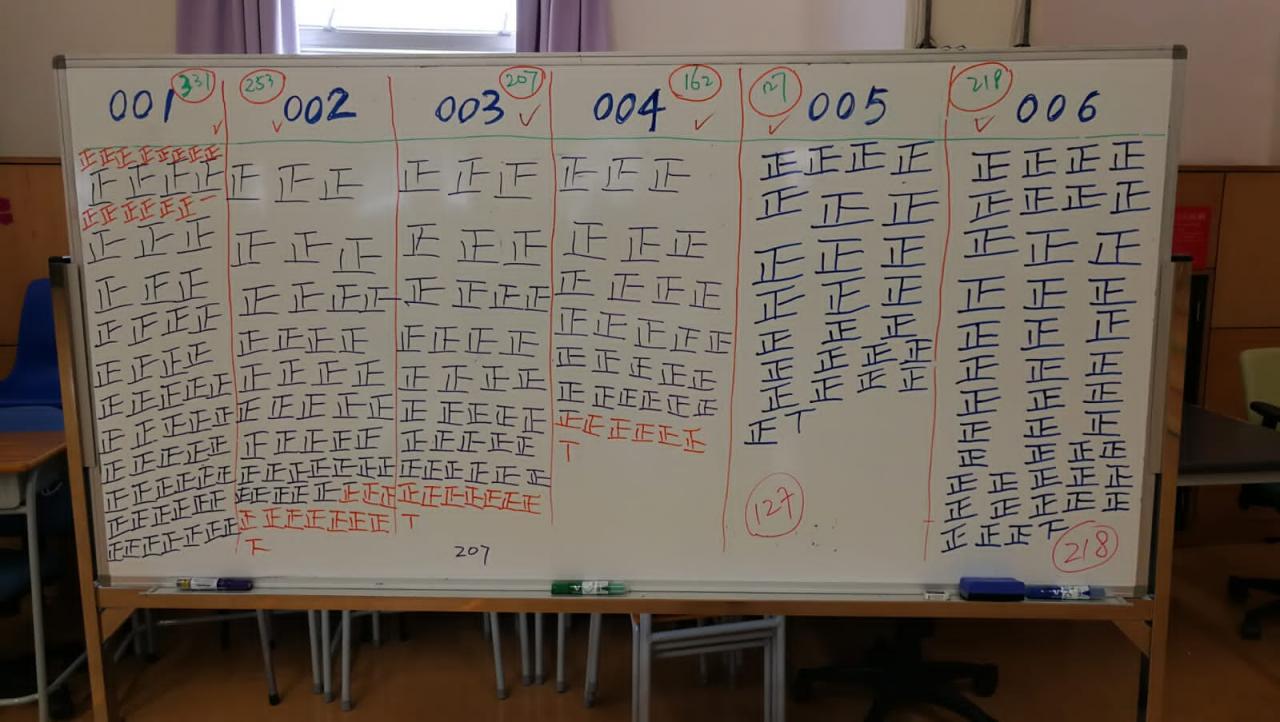 331 001
正正正正正正正
正正正正
正正正正正正一
正正正
正正正
正正正正
正正正
正正正正正
正正正正正正
正正正正正正
正正正正正正
正正正正正正
正正正正正正正
253 002
正正正
正正正
正正正正
正正正正
正正正正
正正正正正
正正正正正
正正正正正正正
正正正正正正正正
正正正正正正正
下
003 207
正正正
正正正
正正正正
正正正正
正正正正
正正正正正
正正正正正
正正正正正正
正正正正正正正
丅
207
004 162
正正正
正正正
正正正正
正正正正正
正正正正正
正正正正正正
正正正正正正
丅
127 005
正正正正
正正正
正正正
正正正
正正正
正正正正
正正正正
正丅
127
218 006
正正正正
正正正正
正正正
正正正
正正正
正正正
正正正
正正正
正正正正
正正正正正
正正正正正
正正正下
218